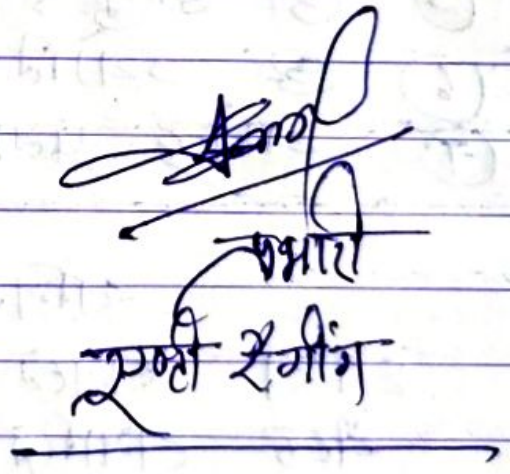 प्रभारी
एण्टी रैगींग